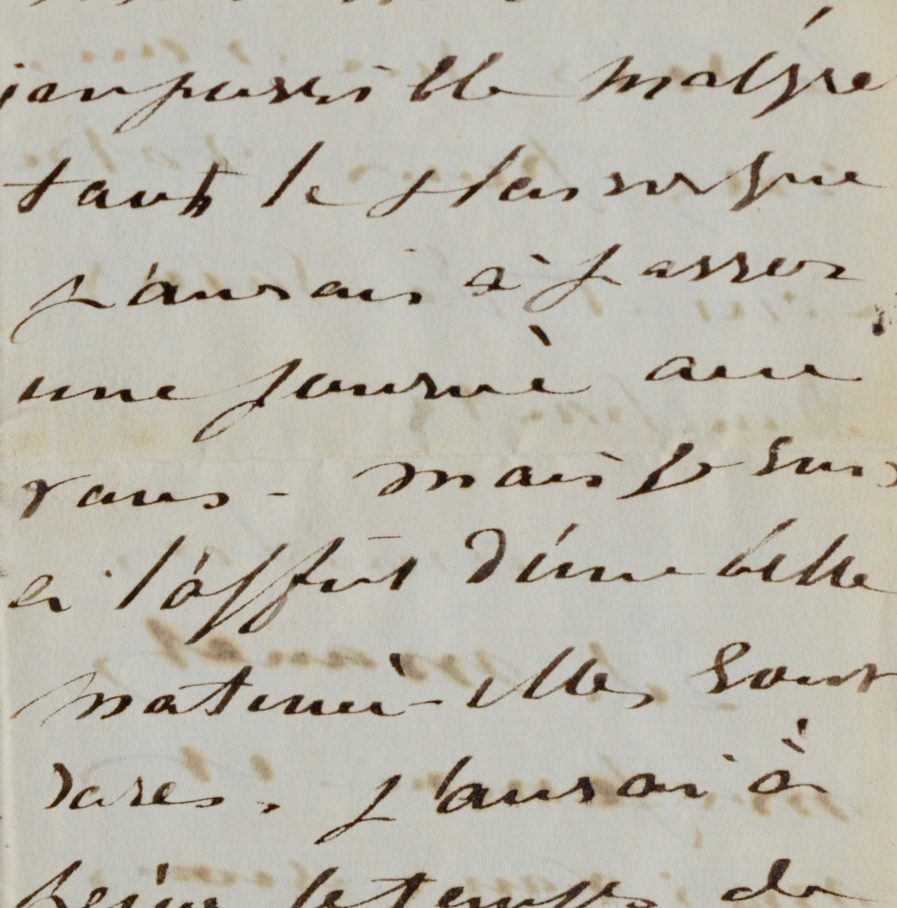 impossible malgré
tout le plaisir que
j'aurais à passer
une journé avec
vous - mais je suis
à l'affut d'une belle
matinée - elles sont
rares, j'aurai à
peine le temps de